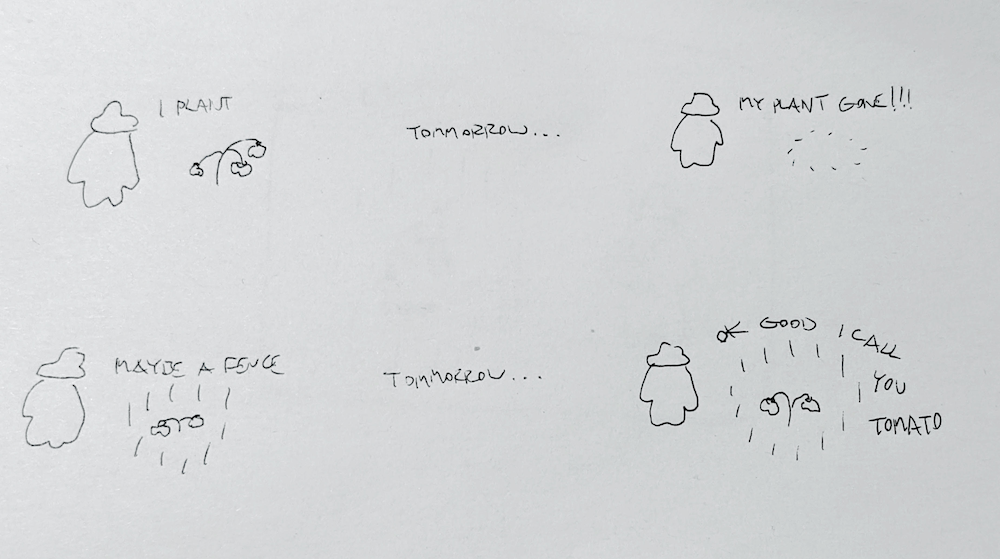 I PLANT
TOMMORROW...
MY PLANT GONE!!!
MAYBE A FENCE
TOMMORROW...
OK GOOD I CALL
YOU
TOMATO